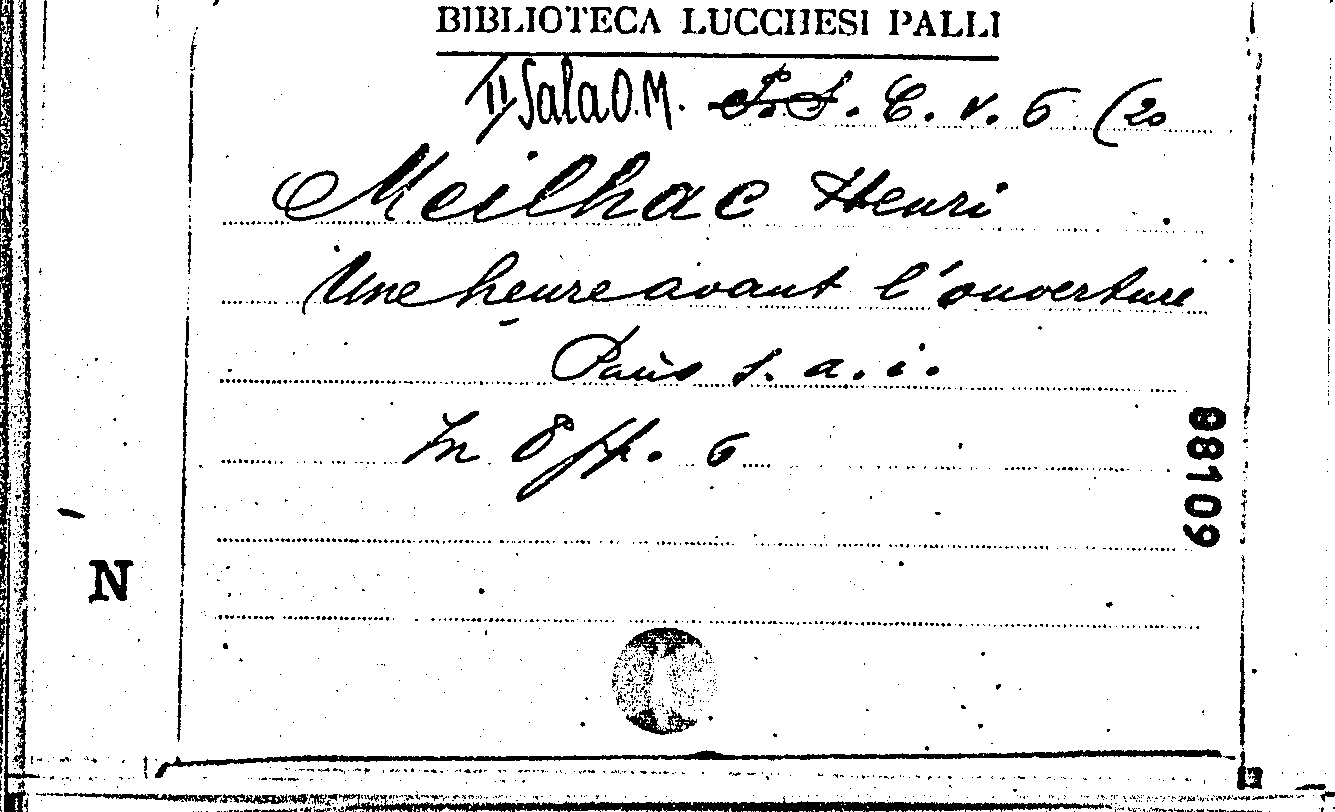 BIBLIOTECA LUCCHESI PALLI
II Sala O.M. S.S. C. v. 6 (20
Meilhac Henri
Une heure avant l'ouverture
Paris s. a. i.
In Opp. 6
88109
N